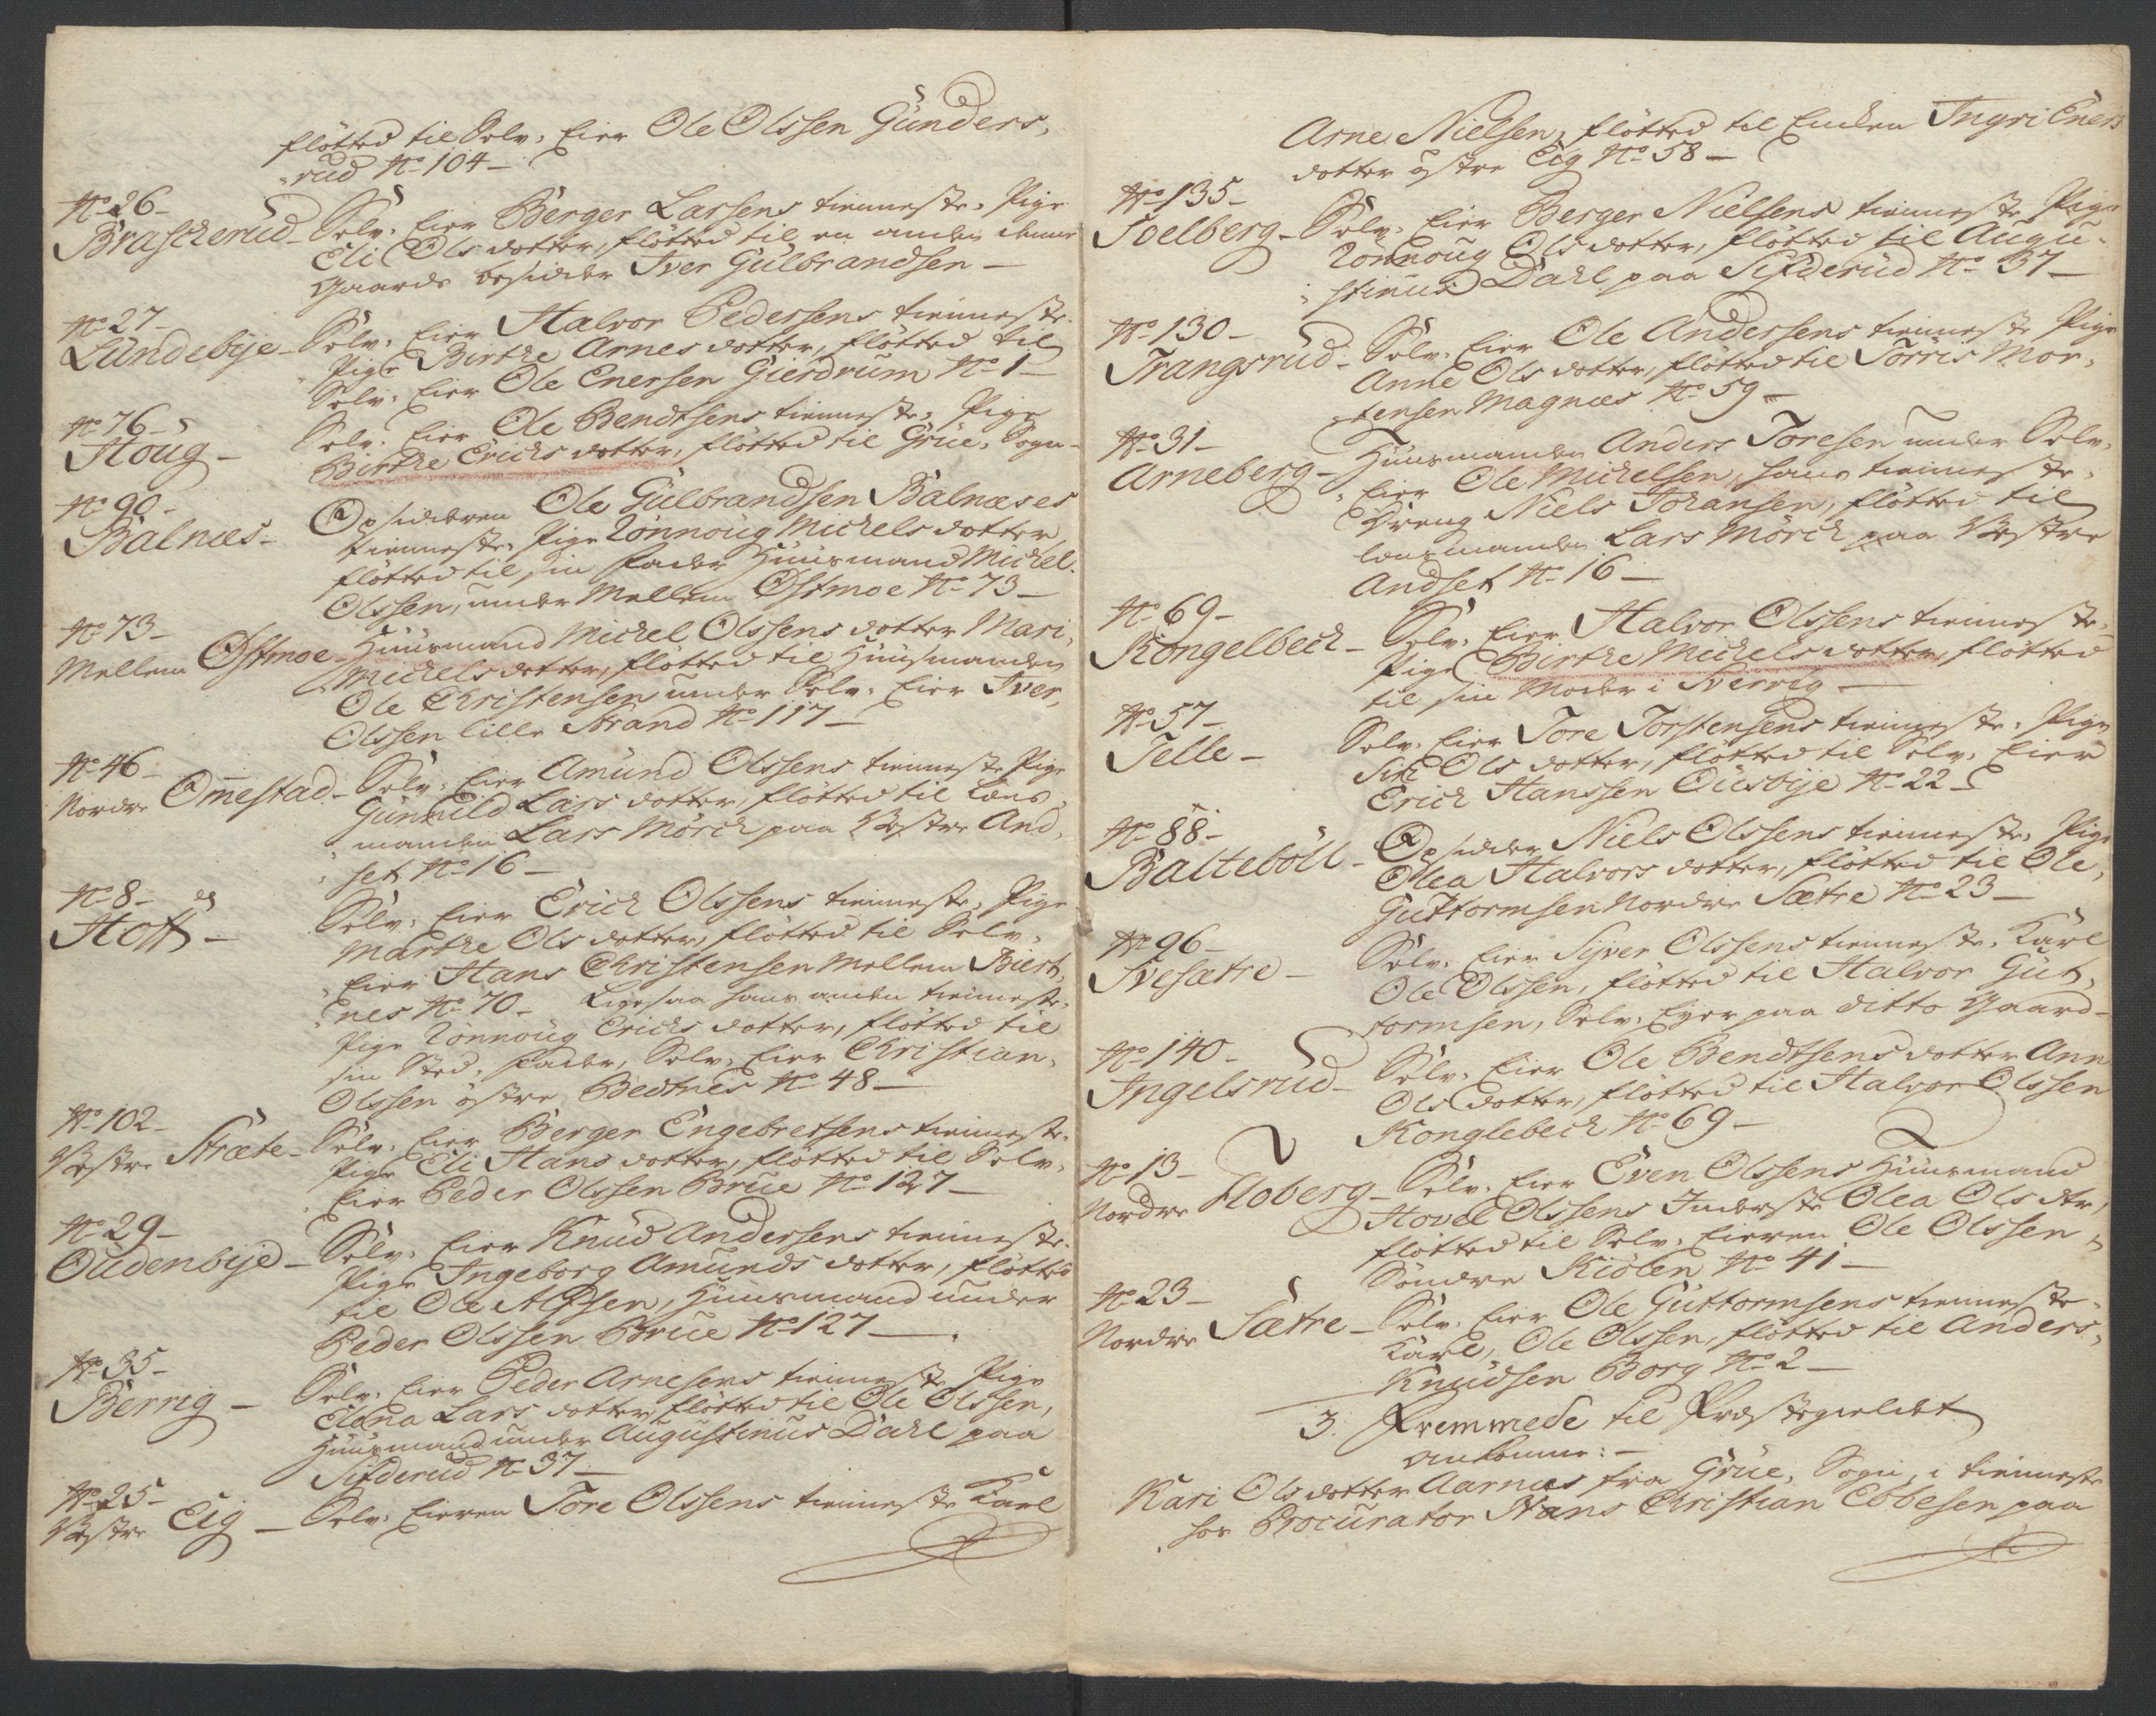 flötted til Selv, Eier Ole Olssen Gunders,
rud No 104 –
No 26 –
Brascherud – Selv, Eier Berger Larsens tienneste, Pige
Eli Olsdotter, flötted til en anden denne
Gaards besidder Iver Gulbrandsen –
No 27 –
Lundebye – Selv, Eier Halvor Pedersens tienneste,
Pige Birthe Arnesdotter, flötted til
Selv, Eier Ole Enersen Gierdrum No 1 –
No 76 –
Houg – Selv, Eier Ole Bendtsens tienneste, Pige
Birthe Erichsdotter, flötted til Grue, Sogn –
No 90 –
Balnæs – Opsidderen Ole Gulbrandsen Balnæses
tienneste, Pige Rönnoug Michelsdotter
flötted til sin Fader Huusmand Michel
Olssen, under Mellem Østmoe No 73 –
No 73 –
Mellem Østmoe – Huusmand Michel Olssens dotter Mari
Michelsdotter, flötted til Huusmanden
Ole Christensen under Selv, Eier Iver,
Olssen lille Strand No 117 –
No 46 –
Nordre Ommestad – Selv, Eier Amund Olssens tienneste Pige
Gunnild Larsdotter, flötted til Lens,
manden Lars Mörch paa Vestre And,
set No 16 –
No 8 –
Hoff – Selv, Eier Erich Olssens tienneste, Pige
Marthe Olsdotter, flötted til Selv,
Eier Hans Christensen Mellem Biert,
nes No 70 – Ligesaa hans anden tienneste,
Pige Rönnoug Erichsdotter, flötted til
sin Sted, Fader, Selv, Eier Christian,
Olssen östre Bedtnes No 48 –
No 102 –
Vestre Stræte – Selv, Eier Berger Engebretsens tienneste,
Pige Eli Hansdotter, flötted til Selv,
Eier Peder Olssen Brue No 127 –
No 29 –
Oudenbye – Selv, Eier Knud Andersens tienneste,
Pige Ingeborg Amunds dotter, flötted
til Ole Alfsen, Huusmand under
Peder Olssen Brue No 127 –
No 35 –
Berrig – Selv, Eier Peder Arnesens tienneste Pige
Elena Larsdotter, flötted til Ole Olssen,
Huusmand under Augustinus Dahl paa
Sifderud No 37 –
No 25 –
Vestre Eig – Selv, Eieren Tore Olssens tienneste Karl
Arne Nielsen, flötted til Enken Ingri Eners
dotter östre Eig No 58 –
No 135 –
Soelberg – Selv, Eier Berger Nielsens tienneste Pige
Rönnoug Olsdotter, flötted til Augu,
stinus Dahl paa Sifderud No 37 –
No 130 –
Trangsrud – Selv, Eier Ole Andersens tienneste Pige
Anne Olsdotter, flötted til Torris Mor,
tensen Magnæs No 59 –
No 31 –
Arneberg – Huusmanden Anders Toresen under Selv,
Eier Ole Michelsen, hans tienneste,
Dreng Niels Johansen, flötted til
Lensmanden Lars Mörch paa Vestre
Andset No 16 –
No 69 –
Kongelbech – Selv, Eier Halvor Olssens tienneste,
Pige Birthe Michelsdotter, flötted
til sin Moder i Sverrig –
No 57 –
Telle – Selv, Eier Tore Torstensens tienneste, Pige
Siri Olsdotter, flötted til Selv, Eier
Erich Hanssen Ousbye No 22 –
No 88 –
Balteböll – Opsidder Niels Olssens tienneste, Pige
Olea Halvorsdotter, flötted til Ole,
Guttormsen Nordre Sætre No 23 –
No 96 –
Svesætre – Selv, Eier Syver Olssens tienneste, Karl
Ole Olssen, flötted til Halvor Gut,
tormsen, Selv, Eyer paa ditto Gaard –
No 140 –
Ingelsrud – Selv, Eier Ole Bendtsens dotter Ann
Olsdotter, flötted til Halvor Olssen
Konglebech No 69 –
No 13 –
Nordre Floberg – Selv, Eier Even Olssens Huusmand
Hovel Olssens Inderste Olea Olsdtr,
flötted til Selv, Eieren Ole Olssen
Söndre Kiölen No 41 –
No 23 –
Nordre Sætre – Selv, Eier Ole Guttormsens tienneste,
Karl, Ole Olssen, flötted til Anders,
Knudsen Borg No 2 –
3. Fremmede til Præstegieldet
ankomne: –
Kari Olsdotter Aarnæs fra Grue, Sogn, i tienneste
hos Procurator Hans Christian Ebbesen paa